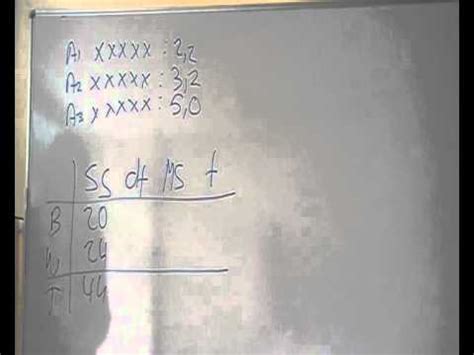 A1 xxxxx : 2,2
A2 xxxxx : 3,2
A3 xxxxx : 5,0
SS df MS f
B 20
W 24
T 44